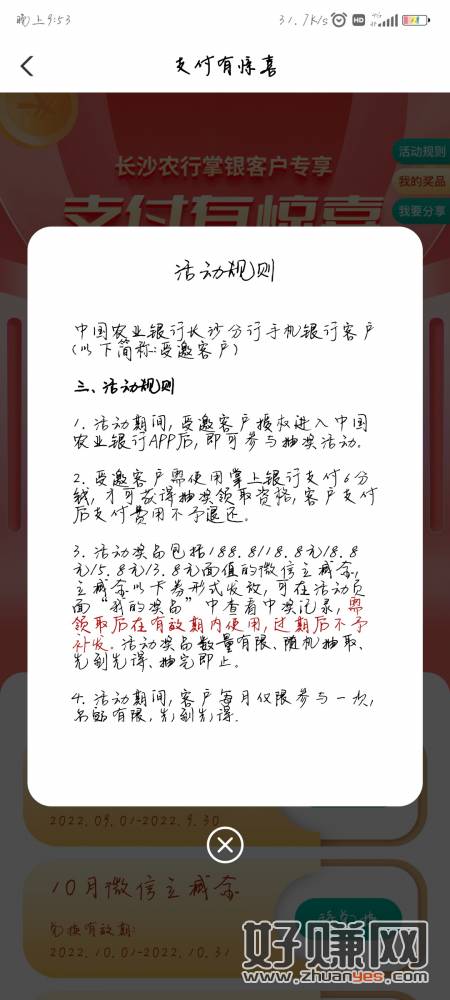 晚上9:53
31.7K/s
HD
4G
支付有惊喜
长沙农行掌银客户专享
支付有惊喜
活动规则
我的奖品
我要分享
活动规则
中国农业银行长沙分行手机银行客户
(以下简称:受邀客户)
三、活动规则
1. 活动期间,受邀客户授权进入中国
农业银行APP后,即可参与抽奖活动。
2. 受邀客户需使用掌上银行支付6分
钱,才可获得抽奖领取资格,客户支付
后支付费用不予退还。
3. 活动奖品包括188.8/18.8元/8.8
元/5.8元/3.8元面值的微信立减金,
立减金以卡券形式发放,可在活动页
面“我的奖品”中查看中奖记录,需
领取后在有效期内使用,过期后不予
补发。活动奖品数量有限、随机抽取、
先到先得、抽完即止。
4. 活动期间,客户每月仅限参与一次,
名额有限,先到先得.
2022.09.01-2022.9.30
10月微信立减金
兑换有效期:
2022.10.01-2022.10.31
好赚网
www.zhuanyes.com